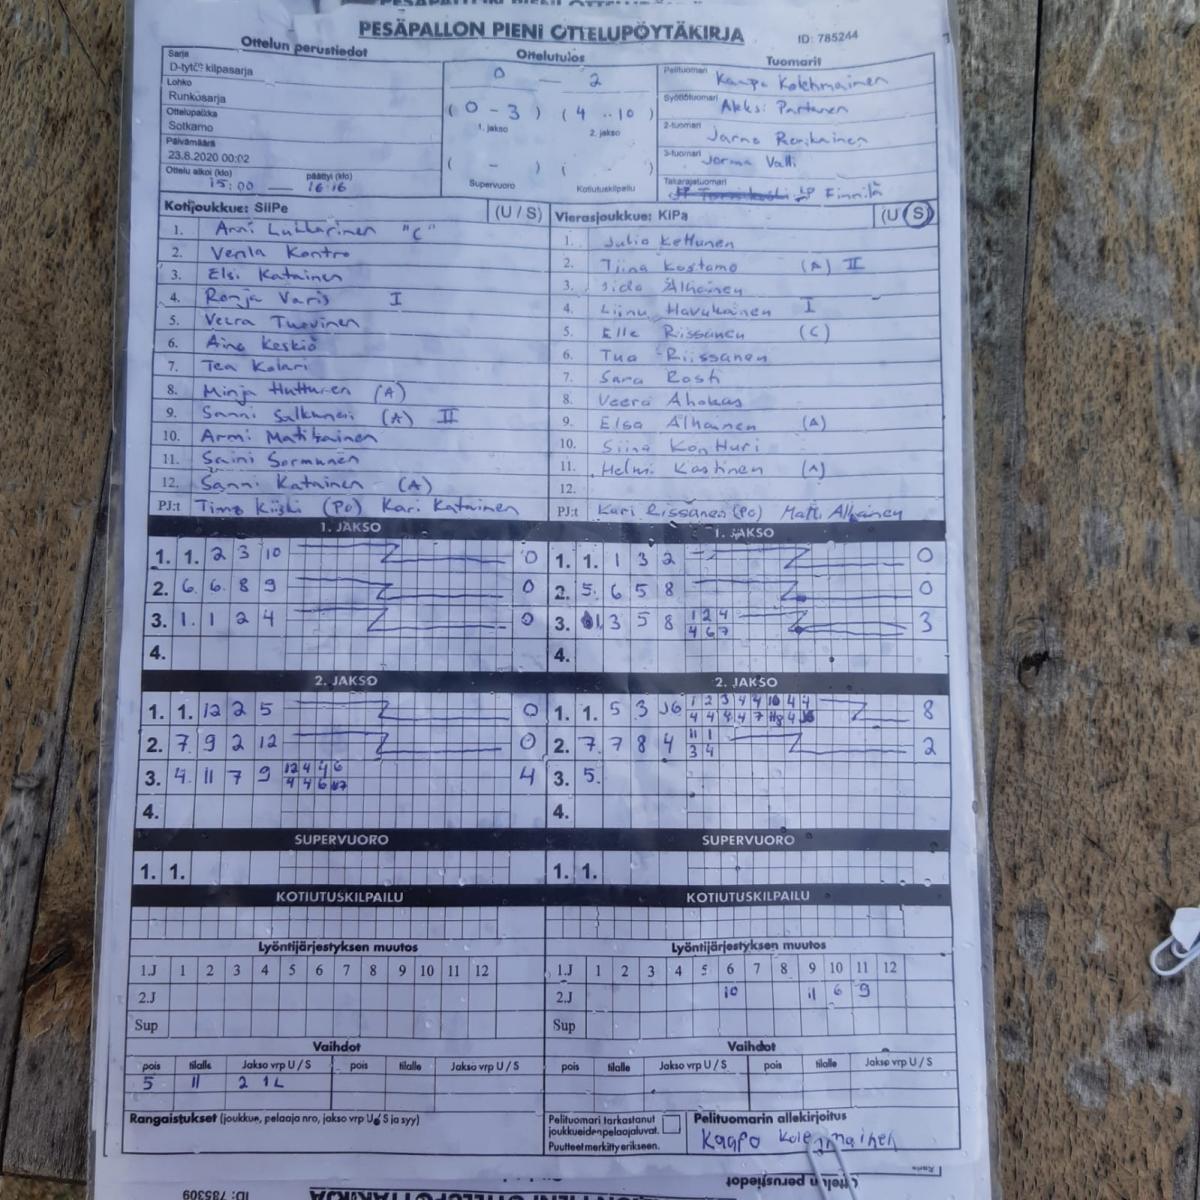 PESÄPALLON PIENI OTTELUPÖYTÄKIRJA
ID: 785244
Ottelun perustiedot
Ottelutulos
Tuomarit
Sarja
D-tytöt kilpasarja
Lohko
Runkosarja
Ottelupaikka
Sotkamo
Päivämäärä
23.8.2020 00:02
Ottelu alkoi (klo) päättyi (klo)
15:00 — 16:16
0 — 2
( 0 - 3 ) ( 4 - 10 )
1. jakso 2. jakso
( - ) ( - )
Supervuoro Kotiutuskilpailu
Pelituomari Kaapo Kolehmainen
Syöttötuomari Akksi Partanen
2-tuomari Jarno Ronkainen
3-tuomari Jorma Valli
Takarajatuomari Finnilä
Kotijoukkue: SiiPe (U / S)
1. Anni Lukkarinen "C"
2. Venla Kontro
3. Elsi Katainen
4. Ronja Varis I
5. Veera Tuovinen
6. Aino Keskiö
7. Tea Kolari
8. Minja Huttunen (A)
9. Sanni (A) II
10. Armi Matikainen
11. Saini Sormunen
12. Sanni Katainen (A)
PJ:t Timo Kiiski (PO) Kari Katainen
Vierasjoukkue: KiPa (U / S)
1. Julia Kettunen
2. Tiina Kostamo (A) II
3. Iida Älhäinen
4. Liinu Havukainen I
5. Elle Rissanen (C)
6. Tua Riissanen
7. Sara Rosti
8. Veera Ahokas
9. Elsa Älhäinen (A)
10. Siina Kontturi
11. Helmi Kostinen (A)
12.
PJ:t Kari Rissanen (PO) Matti Älhäinen
1. JAKSO
1. 1. 2 3 10 0
2. 6. 6 8 9 0
3. 1. 1 2 4 0
4.
1. JAKSO
1. 1. 1 3 2 0
2. 5. 6 5 8 0
3. 1. 3 5 8 1 2 4 3
4 6 7
4.
2. JAKSO
1. 1. 12 2 5 0
2. 7. 9 2 12 0
3. 4. 11 7 9 12 4 4 6 4
4 4 6
4.
2. JAKSO
1. 1. 5 3 1 2 3 4 4 10 4 4 8
4 4 4 4 7 4
2. 7. 7 8 4 11 1 2
3 4
3. 5.
4.
SUPERVUORO
1. 1.
SUPERVUORO
1. 1.
KOTIUTUSKILPAILU
KOTIUTUSKILPAILU
Lyöntijärjestyksen muutos
1.J 1 2 3 4 5 6 7 8 9 10 11 12
2.J
Sup
Lyöntijärjestyksen muutos
1.J 1 2 3 4 5 6 7 8 9 10 11 12
2.J 10 11 6 9
Sup
Vaihdot
pois tilalle Jakso vrp U / S pois tilalle Jakso vrp U / S
5 11 2 1L
Vaihdot
pois tilalle Jakso vrp U / S pois tilalle Jakso vrp U / S
Rangaistukset (joukkue, pelaaja nro, jakso vrp U / S ja syy)
Pelituomari tarkastanut
joukkueiden pelaajaluvat.
Puutteet merkitty erikseen.
Pelituomarin allekirjoitus
Kaapo Kolehmainen
ID: 785309
Ottelun perustiedot